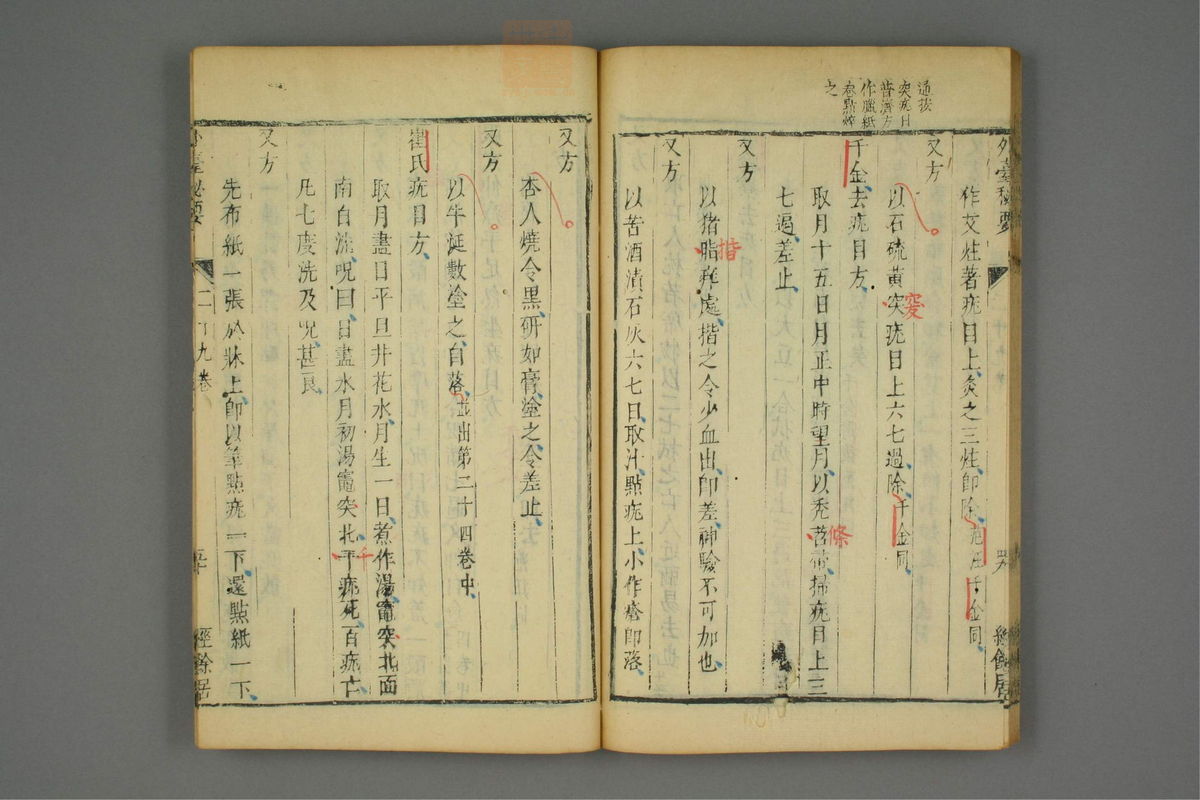 通按
突疣目
普濟方
作臘紙
卷點焠
之
外臺秘要
經餘居
作艾炷著疣目上灸之三炷卽除
千金同
又方
以石硫黃突疣目上六七過除千金同
突
千金去疣目方
取月十五日月正中時望月以禿苕帚掃疣目上三
條
七遍差止
又方
以猪脂癢處揩之令少血出卽差神驗不可加也
揩
又方
以苦酒漬石灰六七日取汁點疣上小作瘡卽落
又方
杏人燒令黑研如膏塗之令差止
又方
以牛涎數塗之自落並出第二十四卷中
崔氏疣目方
取月盡日平旦井花水月生一日煮作湯竈突北面
南自洗呪曰日盡水月初湯竈突北平疣死百疣亡
千
凡七度洗及呪甚良
又方
先布紙一張於牀上卽以筆點疣一下還點紙一下
臺秘要
九卷
經餘居